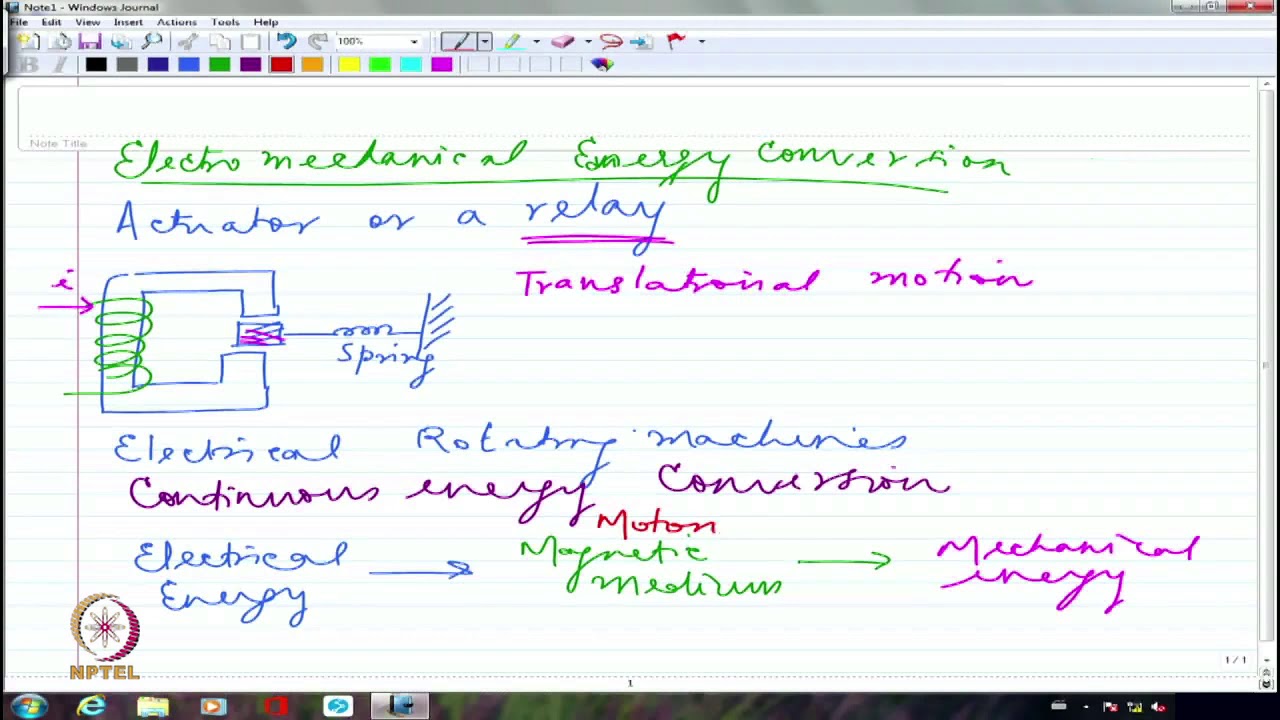 Note1 - Windows Journal
File Edit View Insert Actions Tools Help
100%
B I
Note Title
Electro mechanical Energy Conversion
Actuator or a relay
i
Translational motion
Spring
Electrical Rotating machineries
Continuous energy Conversion
Motor
Electrical Energy
Magnetic medium
Mechanical energy
NPTEL
1 / 1
1